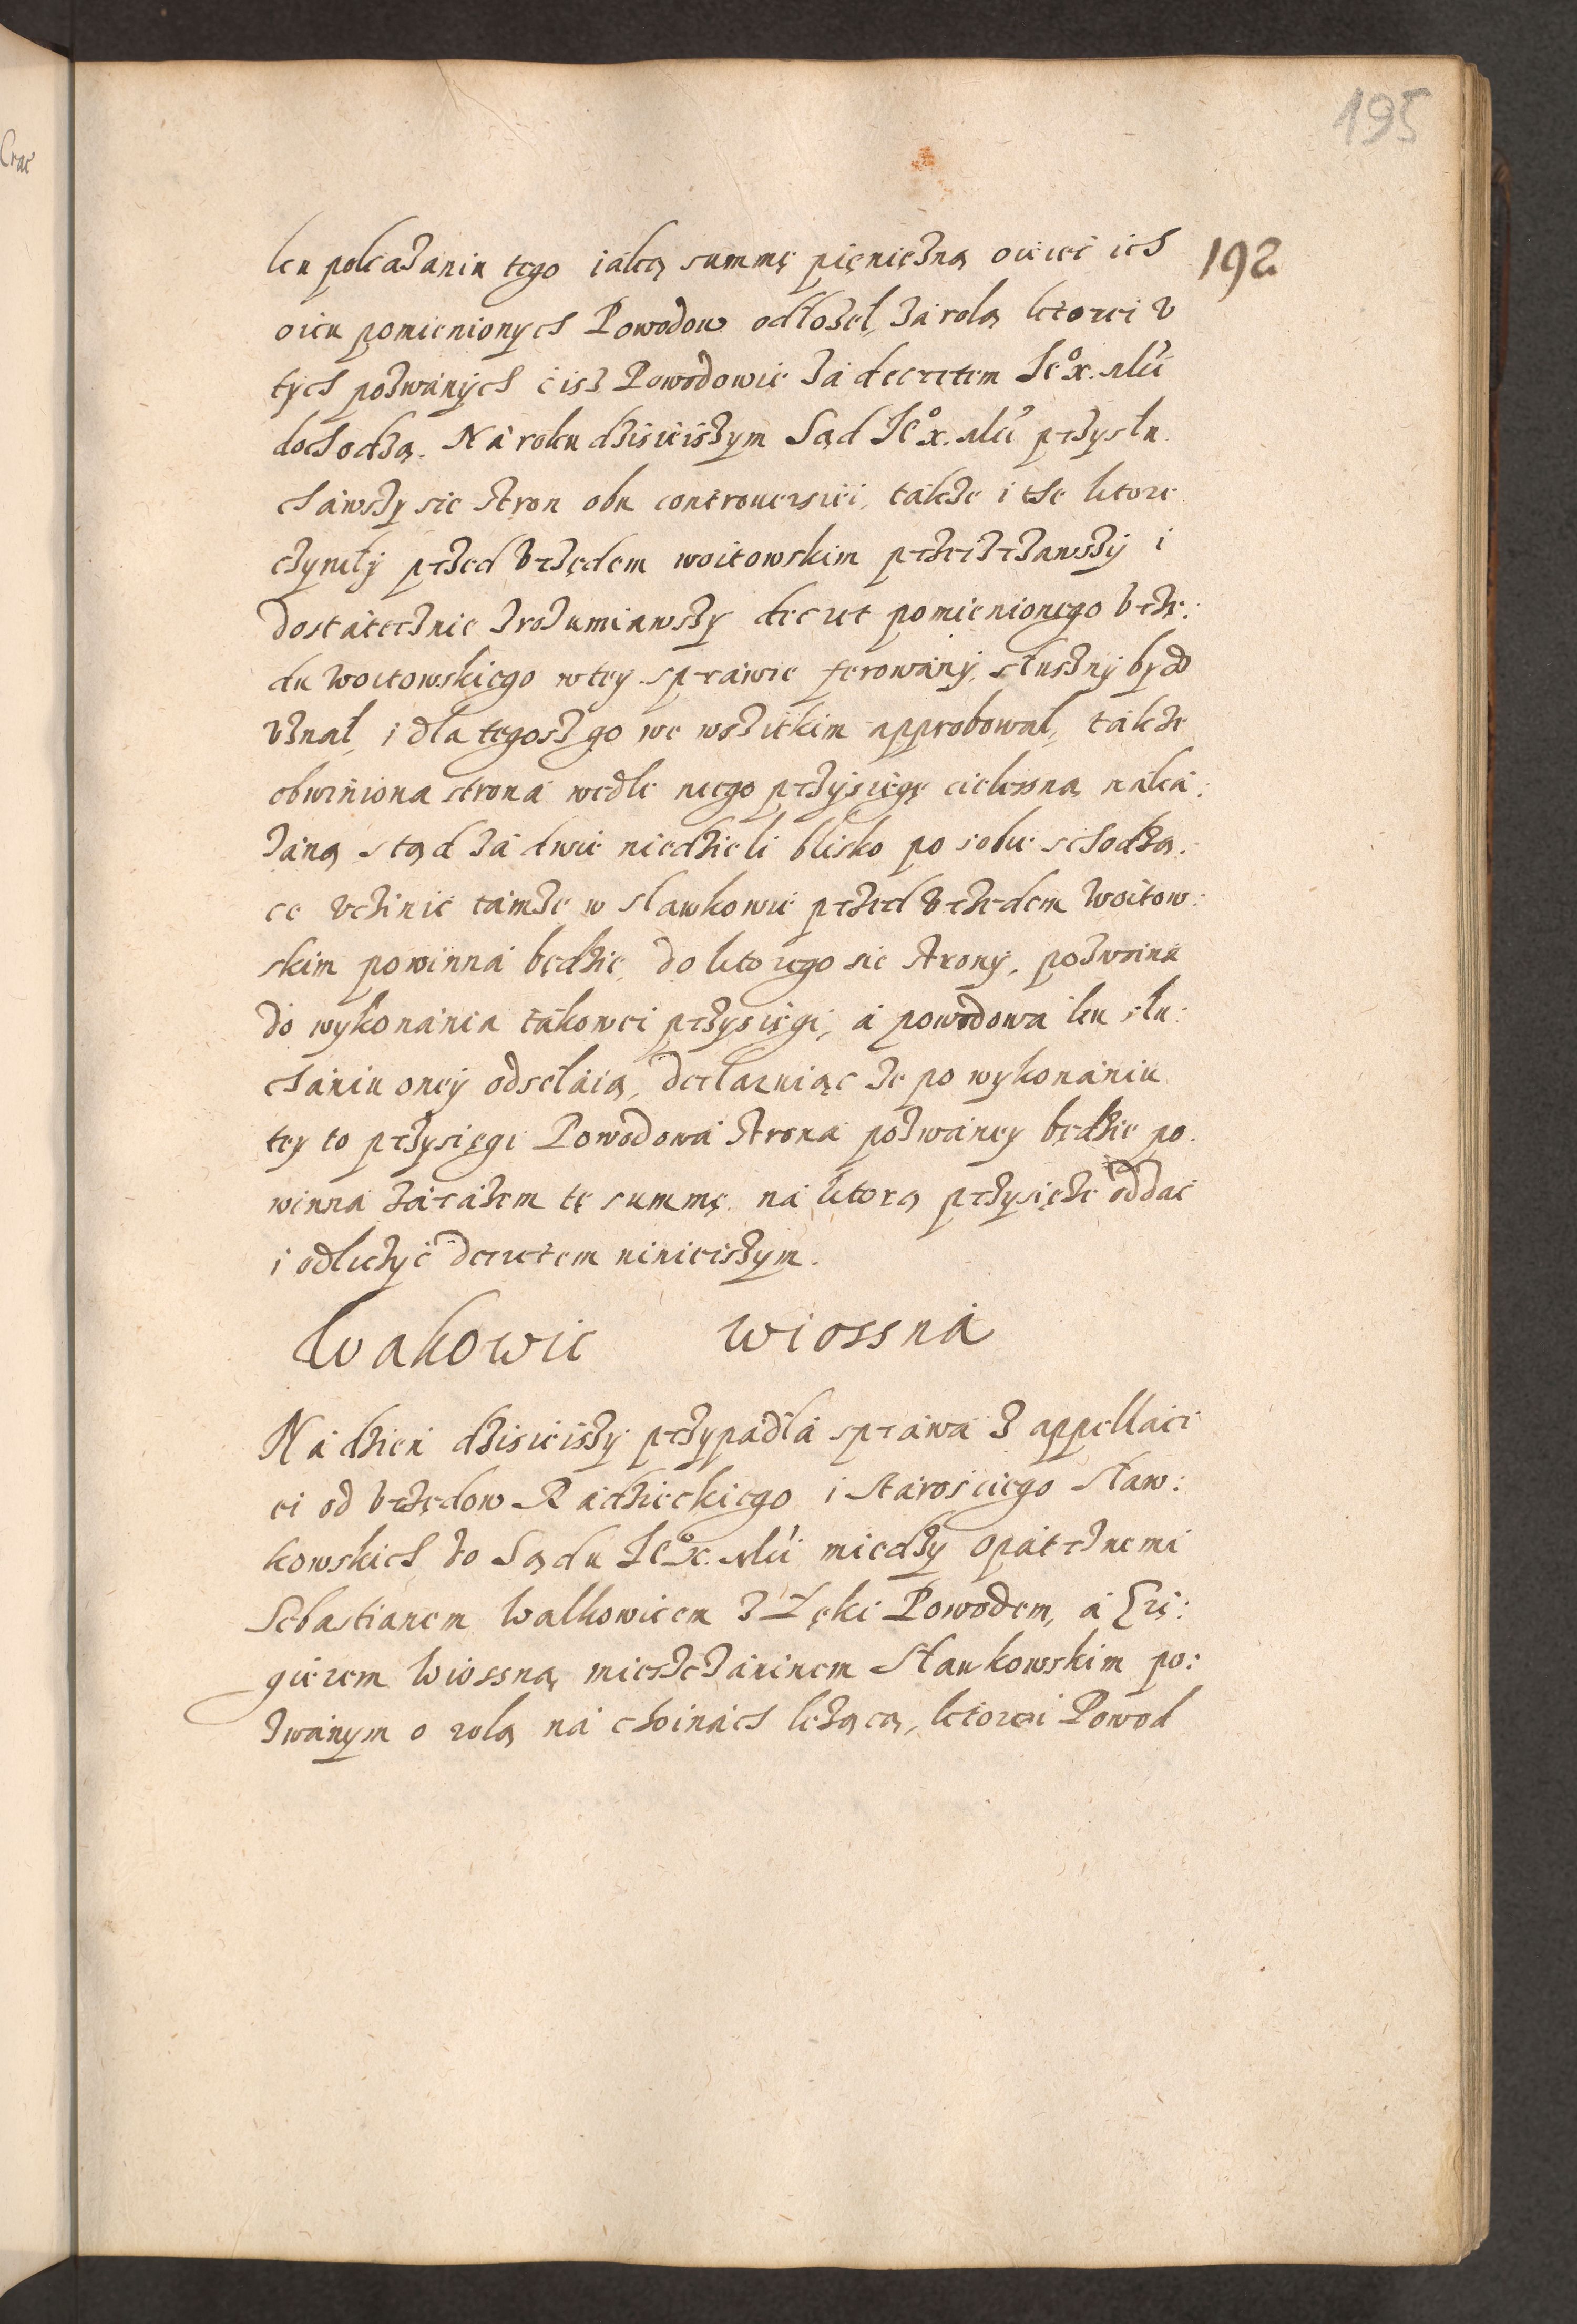 195
192
ku pokazaniu tego iaką summę pieniężną ociec ich
oicu pomienionych Powodow odłożeł, zá rolą ktorei v
tych pozwánych ciż Powodowie zá decretem Ieº x. Mći
dochodzą. Ná roku dzisieiszym Sąd Ieº x. Mći przysłu
cháwszy sie stron obu controuersiei, tákże i the ktore
czyniły przed Vrzędem woitowskim przeirzawszy i
dostátecznie zrozumiawszy decret pomienionego Vrzę:
du Woitowskiego w tey spráwie ferowány, słuszny bydź
vznał, i dla tegosz go we wszitkim approbował, tákże
obwiniona stroná wedle niego przysięgę cielesną náká:
záną stąd zá dwie niedzieli blisko po sobie schodzą:
ce vczinić támże w Sławkowie przed Vrzędem Woitow:
skim powinná będzie, do ktorego sie strony, pozwána
do wykonánia tákowei przysięgi, á powodowa ku słu:
chániu oney odsełáią, decláruiąc że po wykonániu
tey to przysięgi Powodowá stroná pozwáney będzie po
winna zárázem tę summę ná ktorą przysięże oddáć
i odliczyć decretem ninieiszym.
Wakowic wiossná
Ná dzień dzisieiszy przypádłá spráwá z appelláci
ei od Vrzędow Rádzieckiego i Stárościego Sław:
kowskich do Sądu Ieº x. Mći między opátrznemi
Sebastianem Walkowicem z Łęki Powodem, á Grze:
gierzem Wiossną mieszczáninem Sławkowskim po:
zwánym o rolą ná choinách leżącą, ktorei Powod